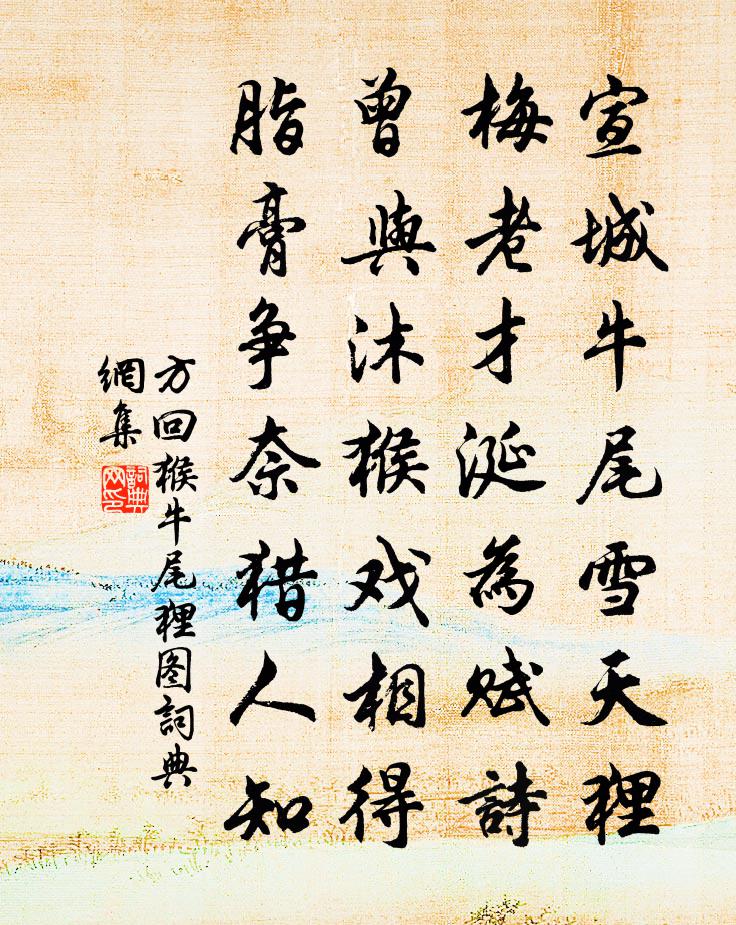 宣城牛尾雪天狸
梅老才涎為赋詩
曾與沐猴戏相得
脂膏争奈猎人知
方回猴牛尾狸图詞典
網集
詞典網印